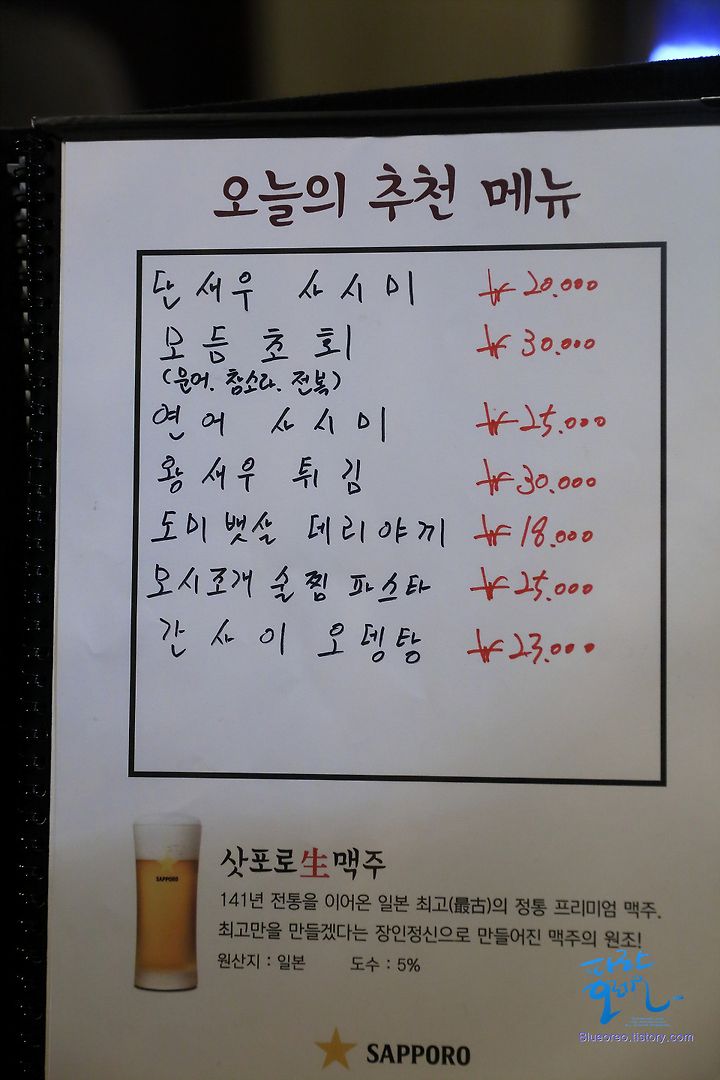 오늘의 추천 메뉴
단새우 사시미 ₩20.000
모듬초회 ₩30.000
(문어. 참소라. 전복)
연어 사시미 ₩25.000
왕새우 튀김 ₩30.000
도미뱃살 데리야끼 ₩18.000
모시조개 술찜 파스타 ₩25.000
간사이 오뎅탕 ₩23.000
SAPPORO
삿포로生맥주
141년 전통을 이어온 일본 최고(最古)의 정통 프리미엄 맥주.
최고만을 만들겠다는 장인정신으로 만들어진 맥주의 원조!
원산지 : 일본 도수 : 5%
파란
오레오
Blueoreo.tistory.com
SAPPORO